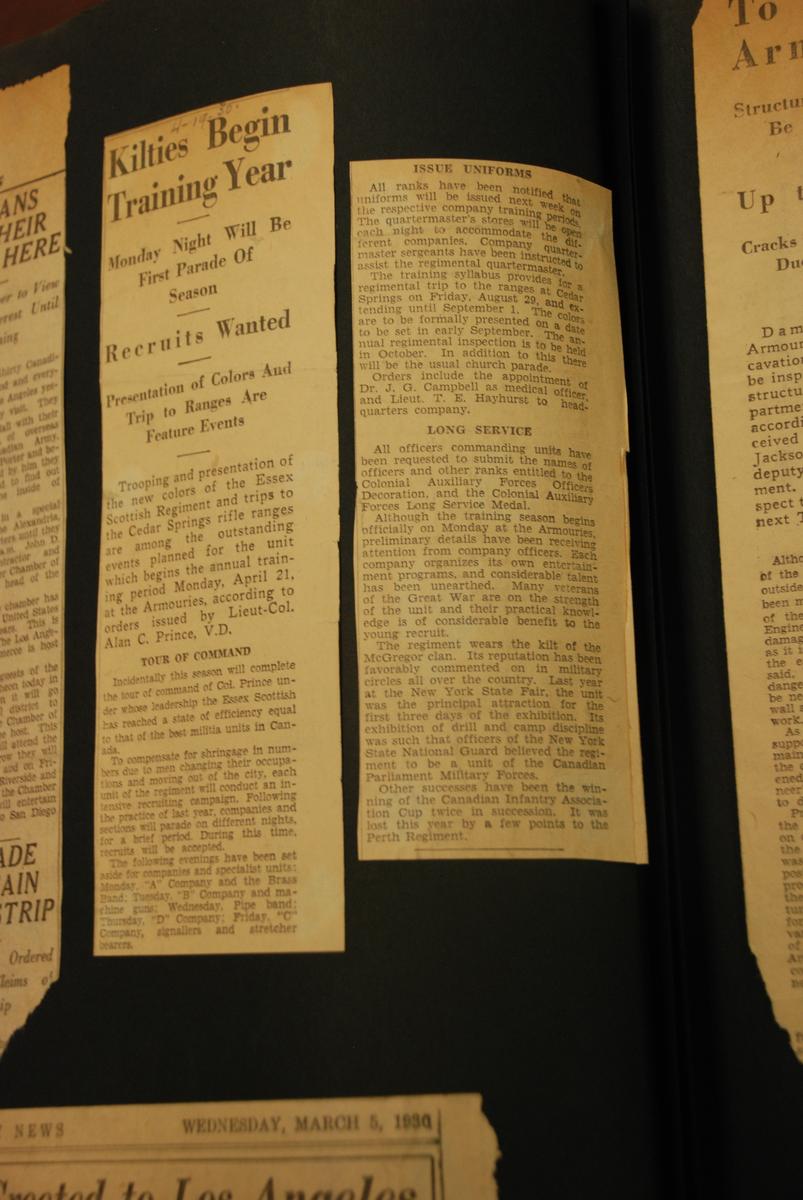 4-19-30.
Kilties Begin
Training Year
Monday Night Will Be
First Parade Of
Season
Recruits Wanted
Presentation of Colors And
Trip to Ranges Are
Feature Events
Trooping and presentation of
the new colors of the Essex
Scottish Regiment and trips to
the Cedar Springs rifle ranges
are among the outstanding
events planned for the unit
which begins the annual train-
ing period Monday, April 21,
at the Armouries, according to
orders issued by Lieut-Col.
Alan C. Prince, V.D.
TOUR OF COMMAND
Incidentally this season will complete
the tour of command of Col. Prince un-
der whose leadership the Essex Scottish
has reached a state of efficiency equal
to that of the best militia units in Can-
ada.
To compensate for shringage in num-
bers due to men changing their occupa-
tions and moving out of the city, each
unit of the regiment will conduct an in-
tensive recruiting campaign. Following
the practice of last year, companies and
sections will parade on different nights,
for a brief period. During this time,
recruits will be accepted.
The following evenings have been set
aside for companies and specialist units:
Monday, "A" Company and the Brass
Band; Tuesday, "B" Company and ma-
chine guns; Wednesday, Pipe band;
Thursday, "D" Company; Friday, "C"
Company, signallers and stretcher
bearers.
ISSUE UNIFORMS
All ranks have been notified that
uniforms will be issued next week on
the respective company training periods.
The quartermaster's stores will be open
each night to accommodate the dif-
ferent companies. Company quarter-
master sergeants have been instructed to
assist the regimental quartermaster.
The training syllabus provides for a
regimental trip to the ranges at Cedar
Springs on Friday, August 29, and ex-
tending until September 1. The colors
are to be formally presented on a date
to be set in early September. The an-
nual regimental inspection is to be held
in October. In addition to this there
will be the usual church parade.
Orders include the appointment of
Dr. J. G. Campbell as medical officer,
and Lieut. T. E. Hayhurst to head-
quarters company.
LONG SERVICE
All officers commanding units have
been requested to submit the names of
officers and other ranks entitled to the
Colonial Auxiliary Forces Officers
Decoration, and the Colonial Auxiliary
Forces Long Service Medal.
Although the training season begins
officially on Monday at the Armouries,
preliminary details have been receiving
attention from company officers. Each
company organizes its own entertain-
ment programs, and considerable talent
has been unearthed. Many veterans
of the Great War are on the strength
of the unit and their practical knowl-
edge is of considerable benefit to the
young recruit.
The regiment wears the kilt of the
McGregor clan. Its reputation has been
favorably commented on in military
circles all over the country. Last year
at the New York State Fair, the unit
was the principal attraction for the
first three days of the exhibition. Its
exhibition of drill and camp discipline
was such that officers of the New York
State National Guard believed the regi-
ment to be a unit of the Canadian
Parliament Military Forces.
Other successes have been the win-
ning of the Canadian Infantry Associa-
tion Cup twice in succession. It was
lost this year by a few points to the
Perth Regiment.
NEWS WEDNESDAY, MARCH 5, 1930
to Los Angeles
HERE
to View
Until
STRIP
Ordered
To
Structu
Be
Up t
Cracks
Du
Dam
Armour
cavation
be insp
structu
partme
accordi
ceived
Jackso
deputy
ment.
spect t
next